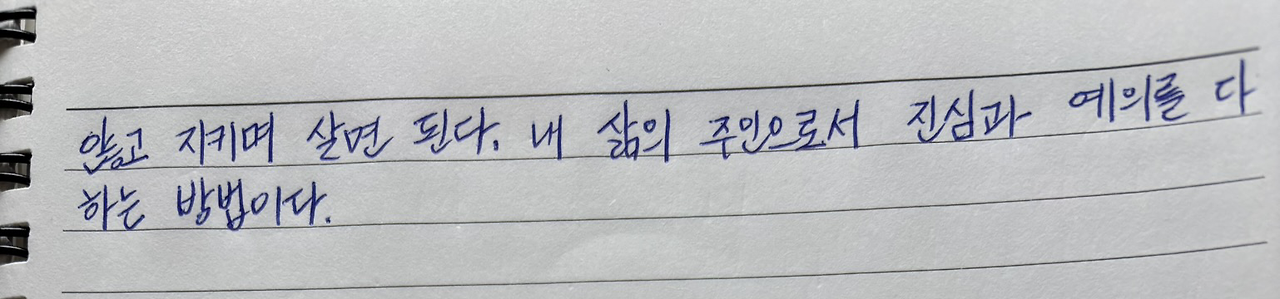 않고 지키며 살면 된다. 내 삶의 주인으로서 진심과 예의를 다
하는 방법이다.